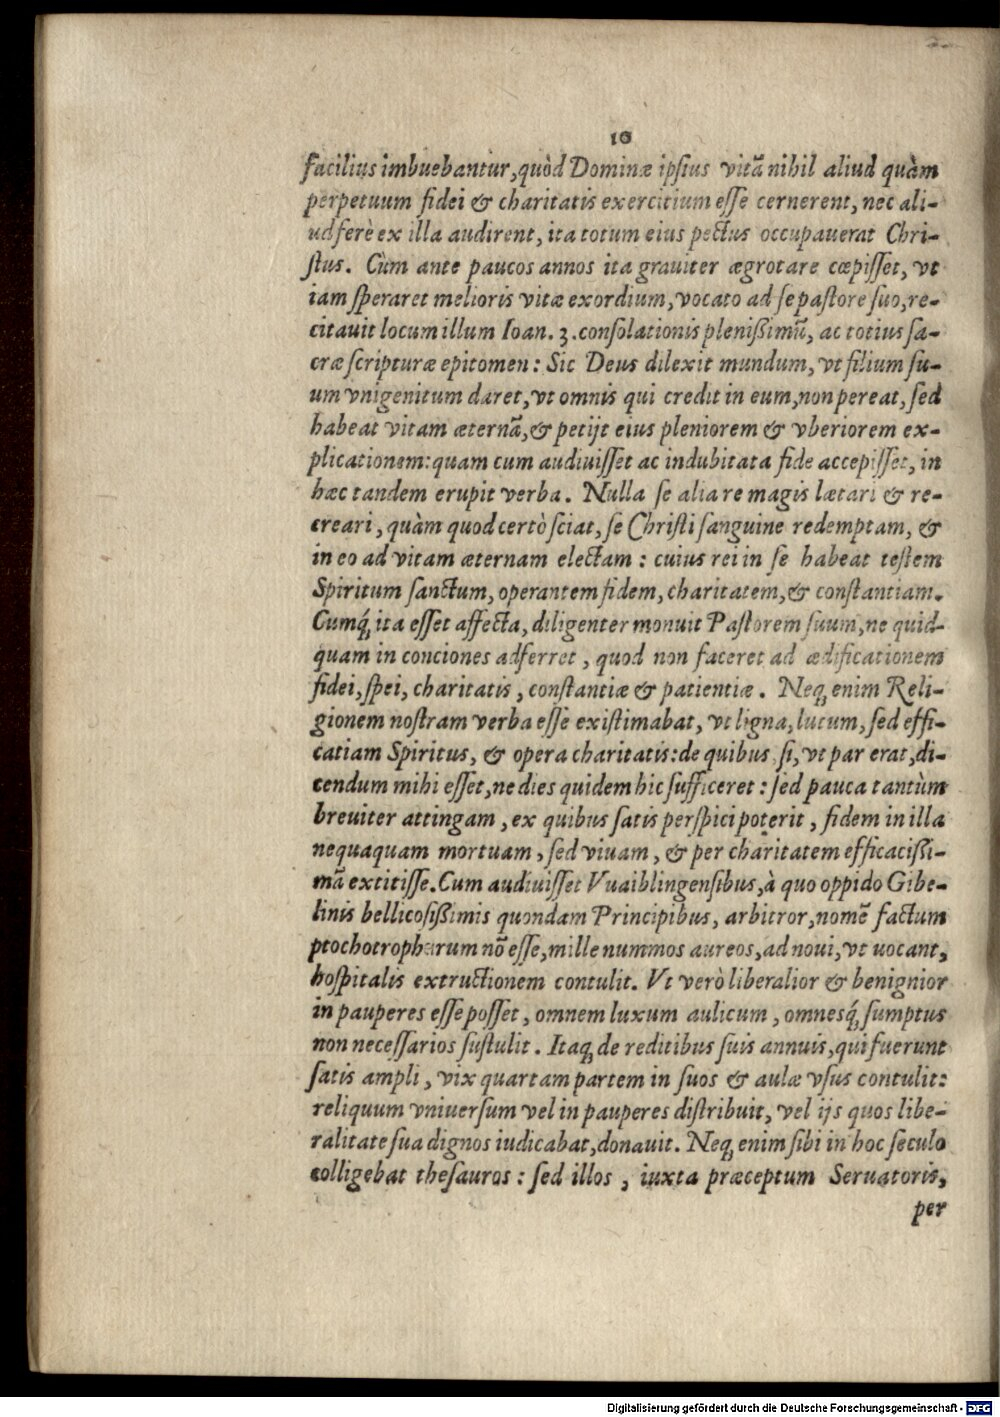 10
facilius imbuebantur, quòd Dominæ ipſius vitā nihil aliud quàm
perpetuum fidei & charitatis exercitium eſſe cernerent, nec ali-
ud ferè ex illa audirent, ita totum eius pectus occupauerat Chri-
ſtus. Cùm ante paucos annos ita grauiter ægrotare cœpiſſet, vt
iam ſperaret melioris vitæ exordium, vocato ad ſe paſtore ſuo, re-
citauit locum illum Ioan. 3. conſolationis pleniſſimū, ac totius ſa-
cræ ſcripturæ epitomen: Sic Deus dilexit mundum, vt filium ſu-
um vnigenitum daret, vt omnis qui credit in eum, non pereat, ſed
habeat vitam æternā, & petijt eius pleniorem & vberiorem ex-
plicationem: quam cum audiuiſſet ac indubitata fide accepiſſet, in
hæc tandem erupit verba. Nulla ſe alia re magis lætari & re-
creari, quàm quod certò ſciat, ſe Chriſti ſanguine redemptam, &
in eo ad vitam æternam electam: cuius rei in ſe habeat teſtem
Spiritum ſanctum, operantem fidem, charitatem, & conſtantiam.
Cumq́; ita eſſet affecta, diligenter monuit Paſtorem ſuum, ne quid-
quam in conciones adferret, quod non faceret ad ædificationem
fidei, ſpei, charitatis, conſtantiæ & patientiæ. Neq; enim Reli-
gionem noſtram verba eſſe exiſtimabat, vt ligna, lucum, ſed effi-
catiam Spiritus, & opera charitatis: de quibus ſi, vt par erat, di-
cendum mihi eſſet, ne dies quidem hic ſufficeret: ſed pauca tantùm
breuiter attingam, ex quibus ſatis perſpici poterit, fidem in illa
nequaquam mortuam, ſed viuam, & per charitatem efficaciſſi-
mā extitiſſe. Cum audiuiſſet Vuaiblingenſibus, à quo oppido Gibe-
linis bellicoſiſſimis quondam Principibus, arbitror, nomē factum
ptochotropharum nō eſſe, mille nummos aureos, ad noui, vt uocant,
hoſpitalis extructionem contulit. Vt verò liberalior & benignior
in pauperes eſſe poſſet, omnem luxum aulicum, omnesq́; ſumptus
non neceſſarios ſuſtulit. Itaq; de reditibus ſuis annuis, qui fuerunt
ſatis ampli, vix quartam partem in ſuos & aulæ vſus contulit:
reliquum vniuerſum vel in pauperes diſtribuit, vel ijs quos libe-
ralitate ſua dignos iudicabat, donauit. Neq; enim ſibi in hoc ſeculo
colligebat theſauros: ſed illos, iuxta præceptum Seruatoris,
per
Digitalisierung gefördert durch die Deutsche Forschungsgemeinschaft - DFG